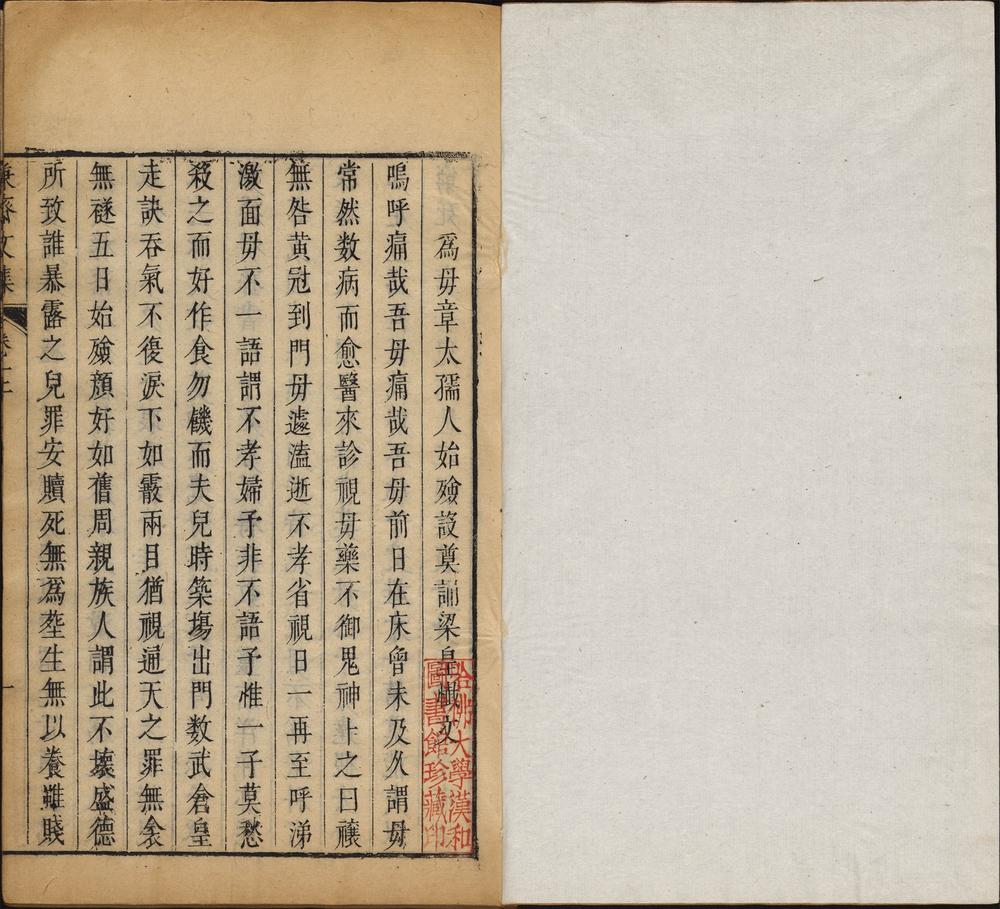 為毋章太孺人始殮設奠誦梁皇懺文
嗚呼痛哉吾毋痛哉吾毋前日在床曾未及久謂毋
常然数病而愈醫來診視毋藥不御鬼神卜之曰禳
無咎黄冠到門毋遽溘逝不孝省視日一再至呼涕
激面毋不一語謂不孝婦予非不語予惟一子莫愁
殺之而好作食勿饑而夫兒時築塲出門数武倉皇
走訣吞氣不復淚下如霰兩目猶視通天之罪無衾
無襚五日始殮顔好如舊周親族人謂此不壞盛德
所致誰暴露之兒罪安贖死無爲塟生無以養雖賤
文集
一
哈佛大學漢和
圖書館珍藏印